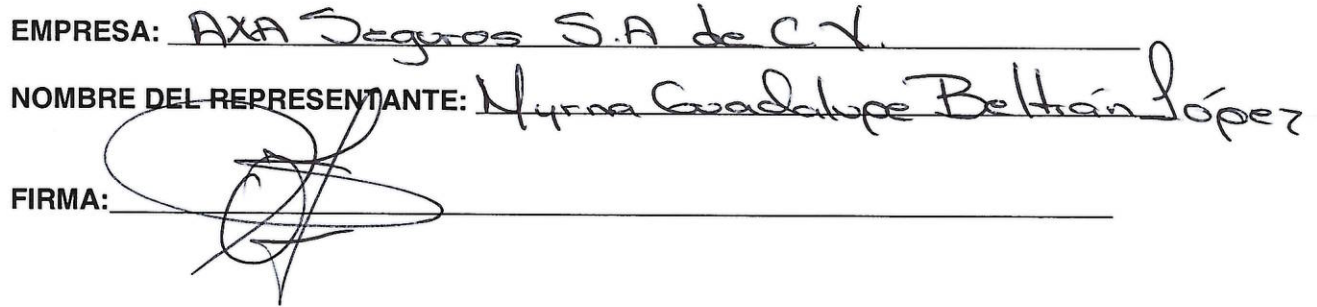 EMPRESA: AXA Seguros S.A de C.V.
NOMBRE DEL REPRESENTANTE: Myrna Guadalupe Beltrán López
FIRMA: